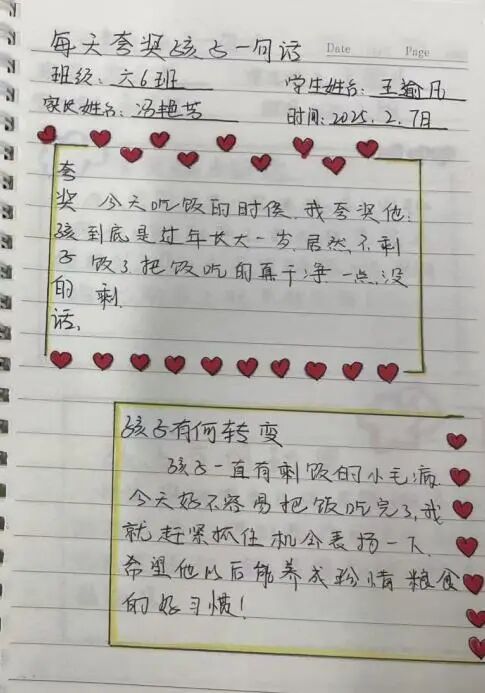 每天夸奖孩子一句话
Date Page
班级：六6班 学生姓名：王瑜凡
家长姓名：冯艳芳 时间：2025.2.7日
夸奖孩子的话、
今天吃饭的时候，我夸奖他：
到底是过年长大一岁，居然不剩
饭了，把饭吃的真干净，一点没
剩。
孩子有何转变
孩子一直有剩饭的小毛病，
今天好不容易把饭吃完了，我
就赶紧抓住机会表扬一下，
希望他以后能养成珍惜粮食
的好习惯！